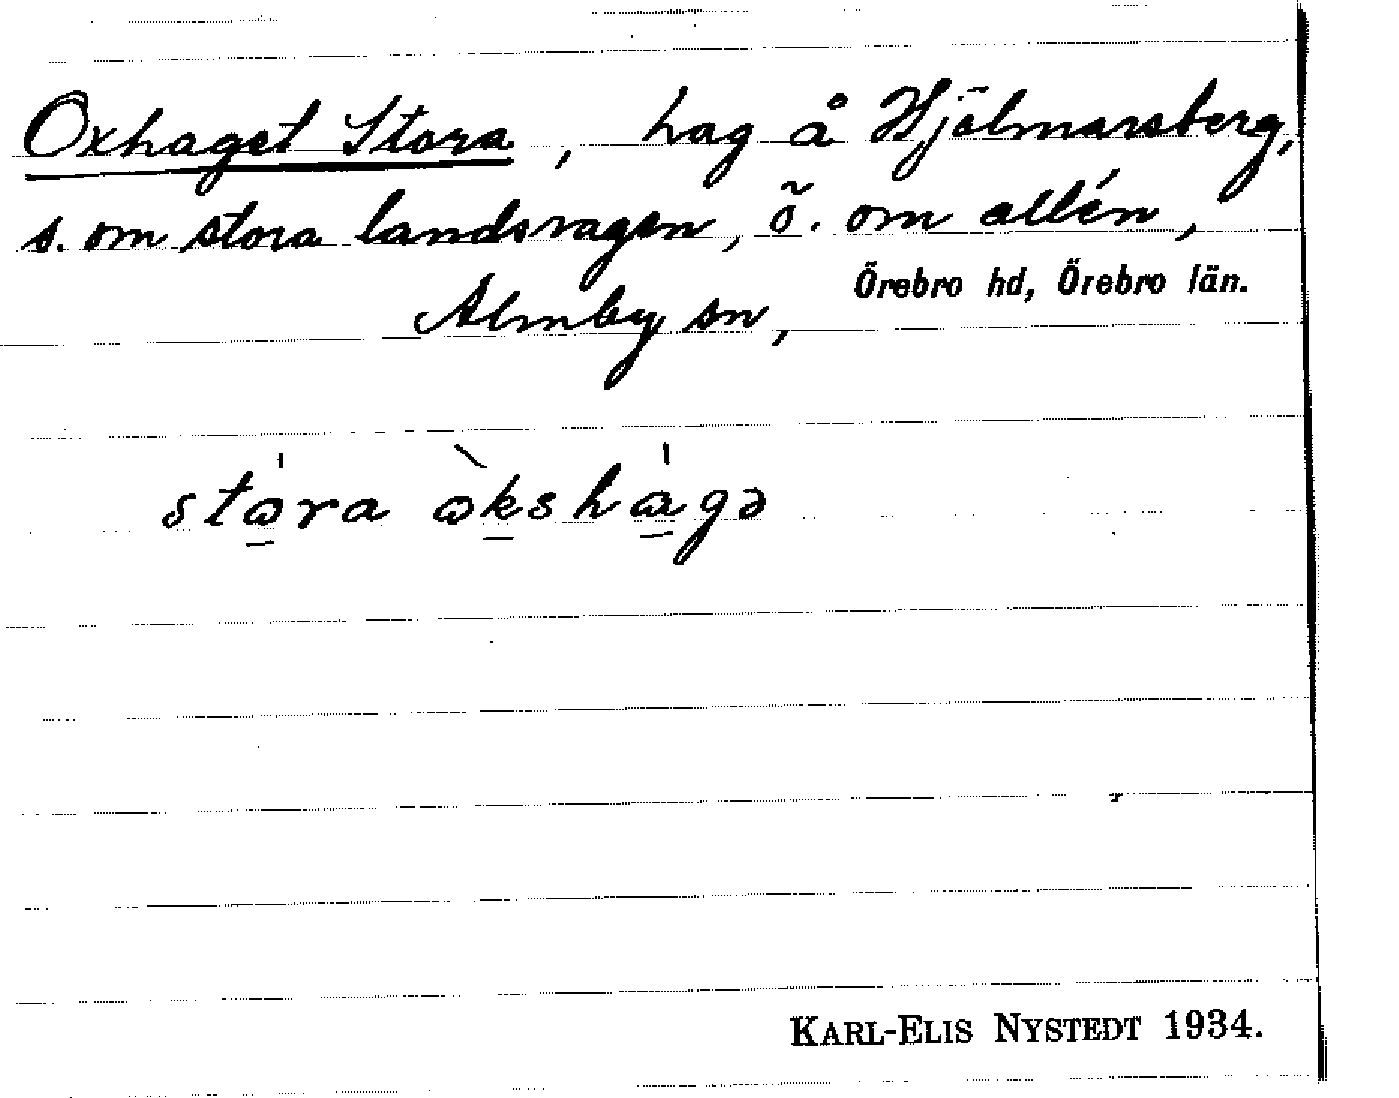 Oxhaget Stora, hag å Hjälmarsberg,
s. om stora landsvagen, ö. om allén,
Almby sn, Örebro hd, Örebro län.
stɷ́ra ɷ̀kshɑ́gə
KARL-ELIS NYSTEDT 1934.